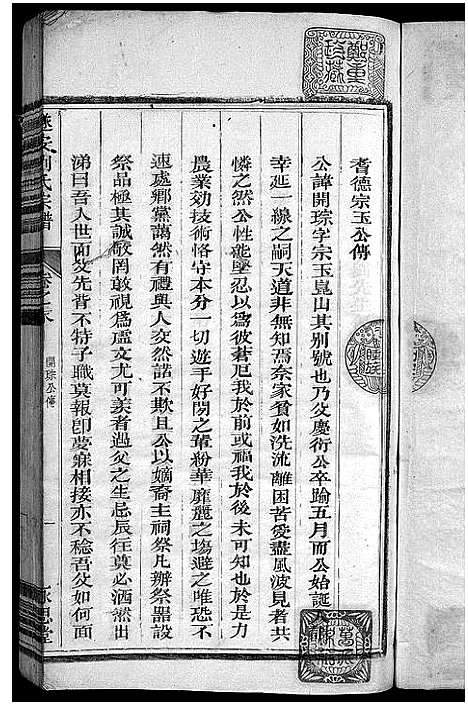 耆德宗玉公傳
公諱開琮字宗玉崑山其別號也乃父慶衍公卒踰五月而公始誕
幸延一線之嗣天道非無知焉奈家貧如洗流離困苦愛盡風波見者共
憐之然公性能堅忍以為彼蒼厄我於前或福我於後未可知也於是力
農業効技術恪守本分一切遊手好閑之輩粉華靡麗之塲避之唯恐不
速處鄉黨藹然有禮與人交然諾不欺且公以嫡裔主祠祭凡辦祭器設
祭品極其誠敬罔敢視爲虛文尤可羙者過父之生忌辰往奠必洒然出
涕曰吾人世而父先背不特子職莫報卽夢寐相接亦不稔吾父如何面
遂安劉氏宗譜
卷之末
開琮公傳
一
永思堂
鄭重珍藏